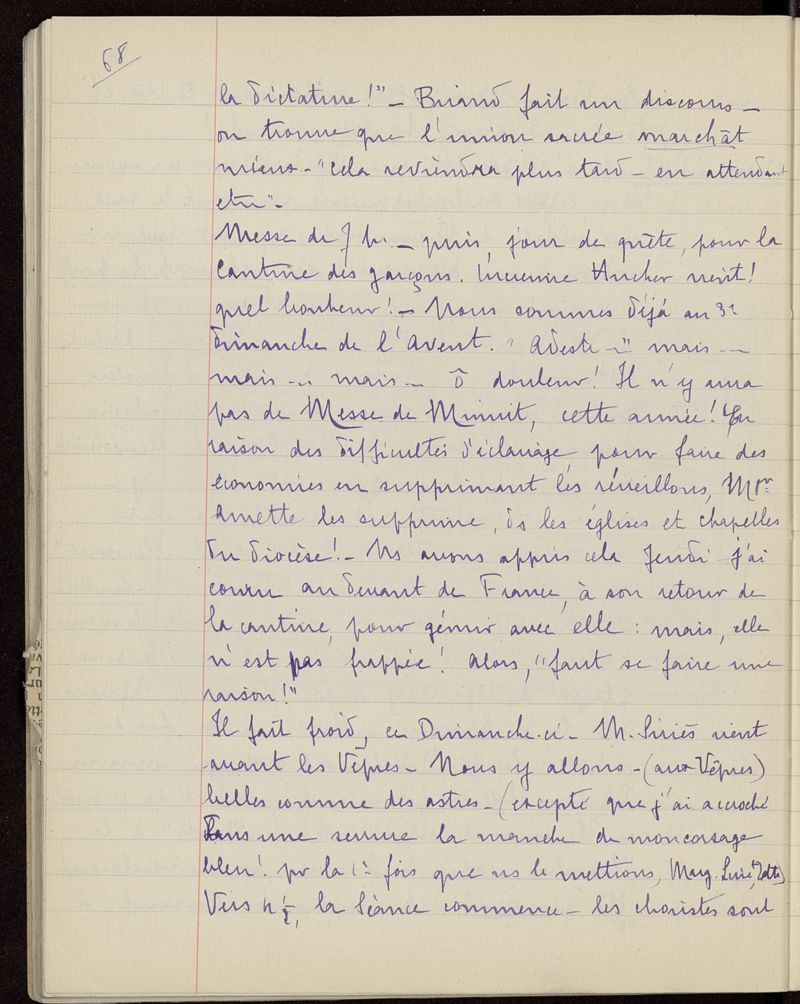 68
la dictature !" — Briand fait un discours —
on trouve que l'union sacrée marchât
mieux — "cela reviendra plus tard — en attendant
etc" —
Messe de 7 h. — puis, jour de quête, pour la
Cantine des garçons. vient !
quel bonheur ! — Nous sommes déjà au 3e
dimanche de l'Avent. "Adeste —" mais ...
mais ... mais ... ô douleur ! Il n'y aura
pas de Messe de Minuit, cette année ! En
raison des difficultés d'éclairage pour faire des
économies en supprimant les réveillons, Mgr
Amette les supprime, ds les églises et chapelles
du diocèse ! — Ns avons appris cela Jeudi j'ai
couru au devant de France, à son retour de
la cantine, pour gémir avec elle : mais, elle
n'est pas frappée ! Alors, "faut se faire une
raison !"
Il fait froid, ce Dimanche-ci — M. vient
avant les Vêpres — Nous y allons — (aux Vêpres)
belles comme des astres — (excepté que j'ai accroché
dans une serrure la manche de mon corsage
bleu ! pr la 1e fois que ns le mettions, Marg.
Vers 4 ½, la Séance commence — les choristes sont